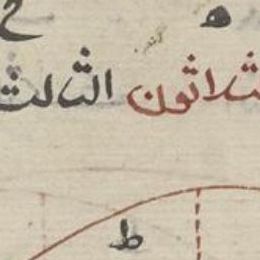 ح ه
ثلاثون الثالث
ط